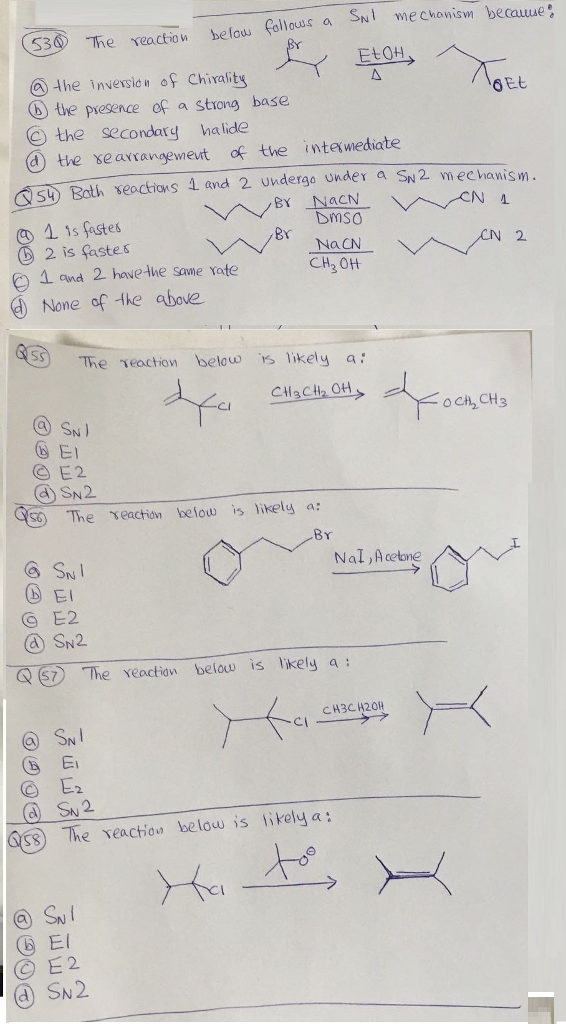 53Q The reaction below follows a SN1 mechanism because:
Br
EtOH
Δ
OEt
(a) the inversion of Chirality
(b) the presence of a strong base
(c) the secondary halide
(d) the rearrangement of the intermediate
Q54 Both reactions 1 and 2 undergo under a SN2 mechanism.
Br NaCN CN 1
DMSO
(a) 1 is faster
Br NaCN CN 2
(b) 2 is faster
CH3OH
(c) 1 and 2 have the same rate
(d) None of the above
Q55 The reaction below is likely a:
Cl CH3CH2OH OCH2CH3
(a) SN1
(b) E1
(c) E2
(d) SN2
Q56 The reaction below is likely a:
Br NaI, Acetone I
(a) SN1
(b) E1
(c) E2
(d) SN2
Q57 The reaction below is likely a:
Cl CH3CH2OH
(a) SN1
(b) E1
(c) E2
(d) SN2
Q58 The reaction below is likely a:
Cl O⊖
(a) SN1
(b) E1
(c) E2
(d) SN2